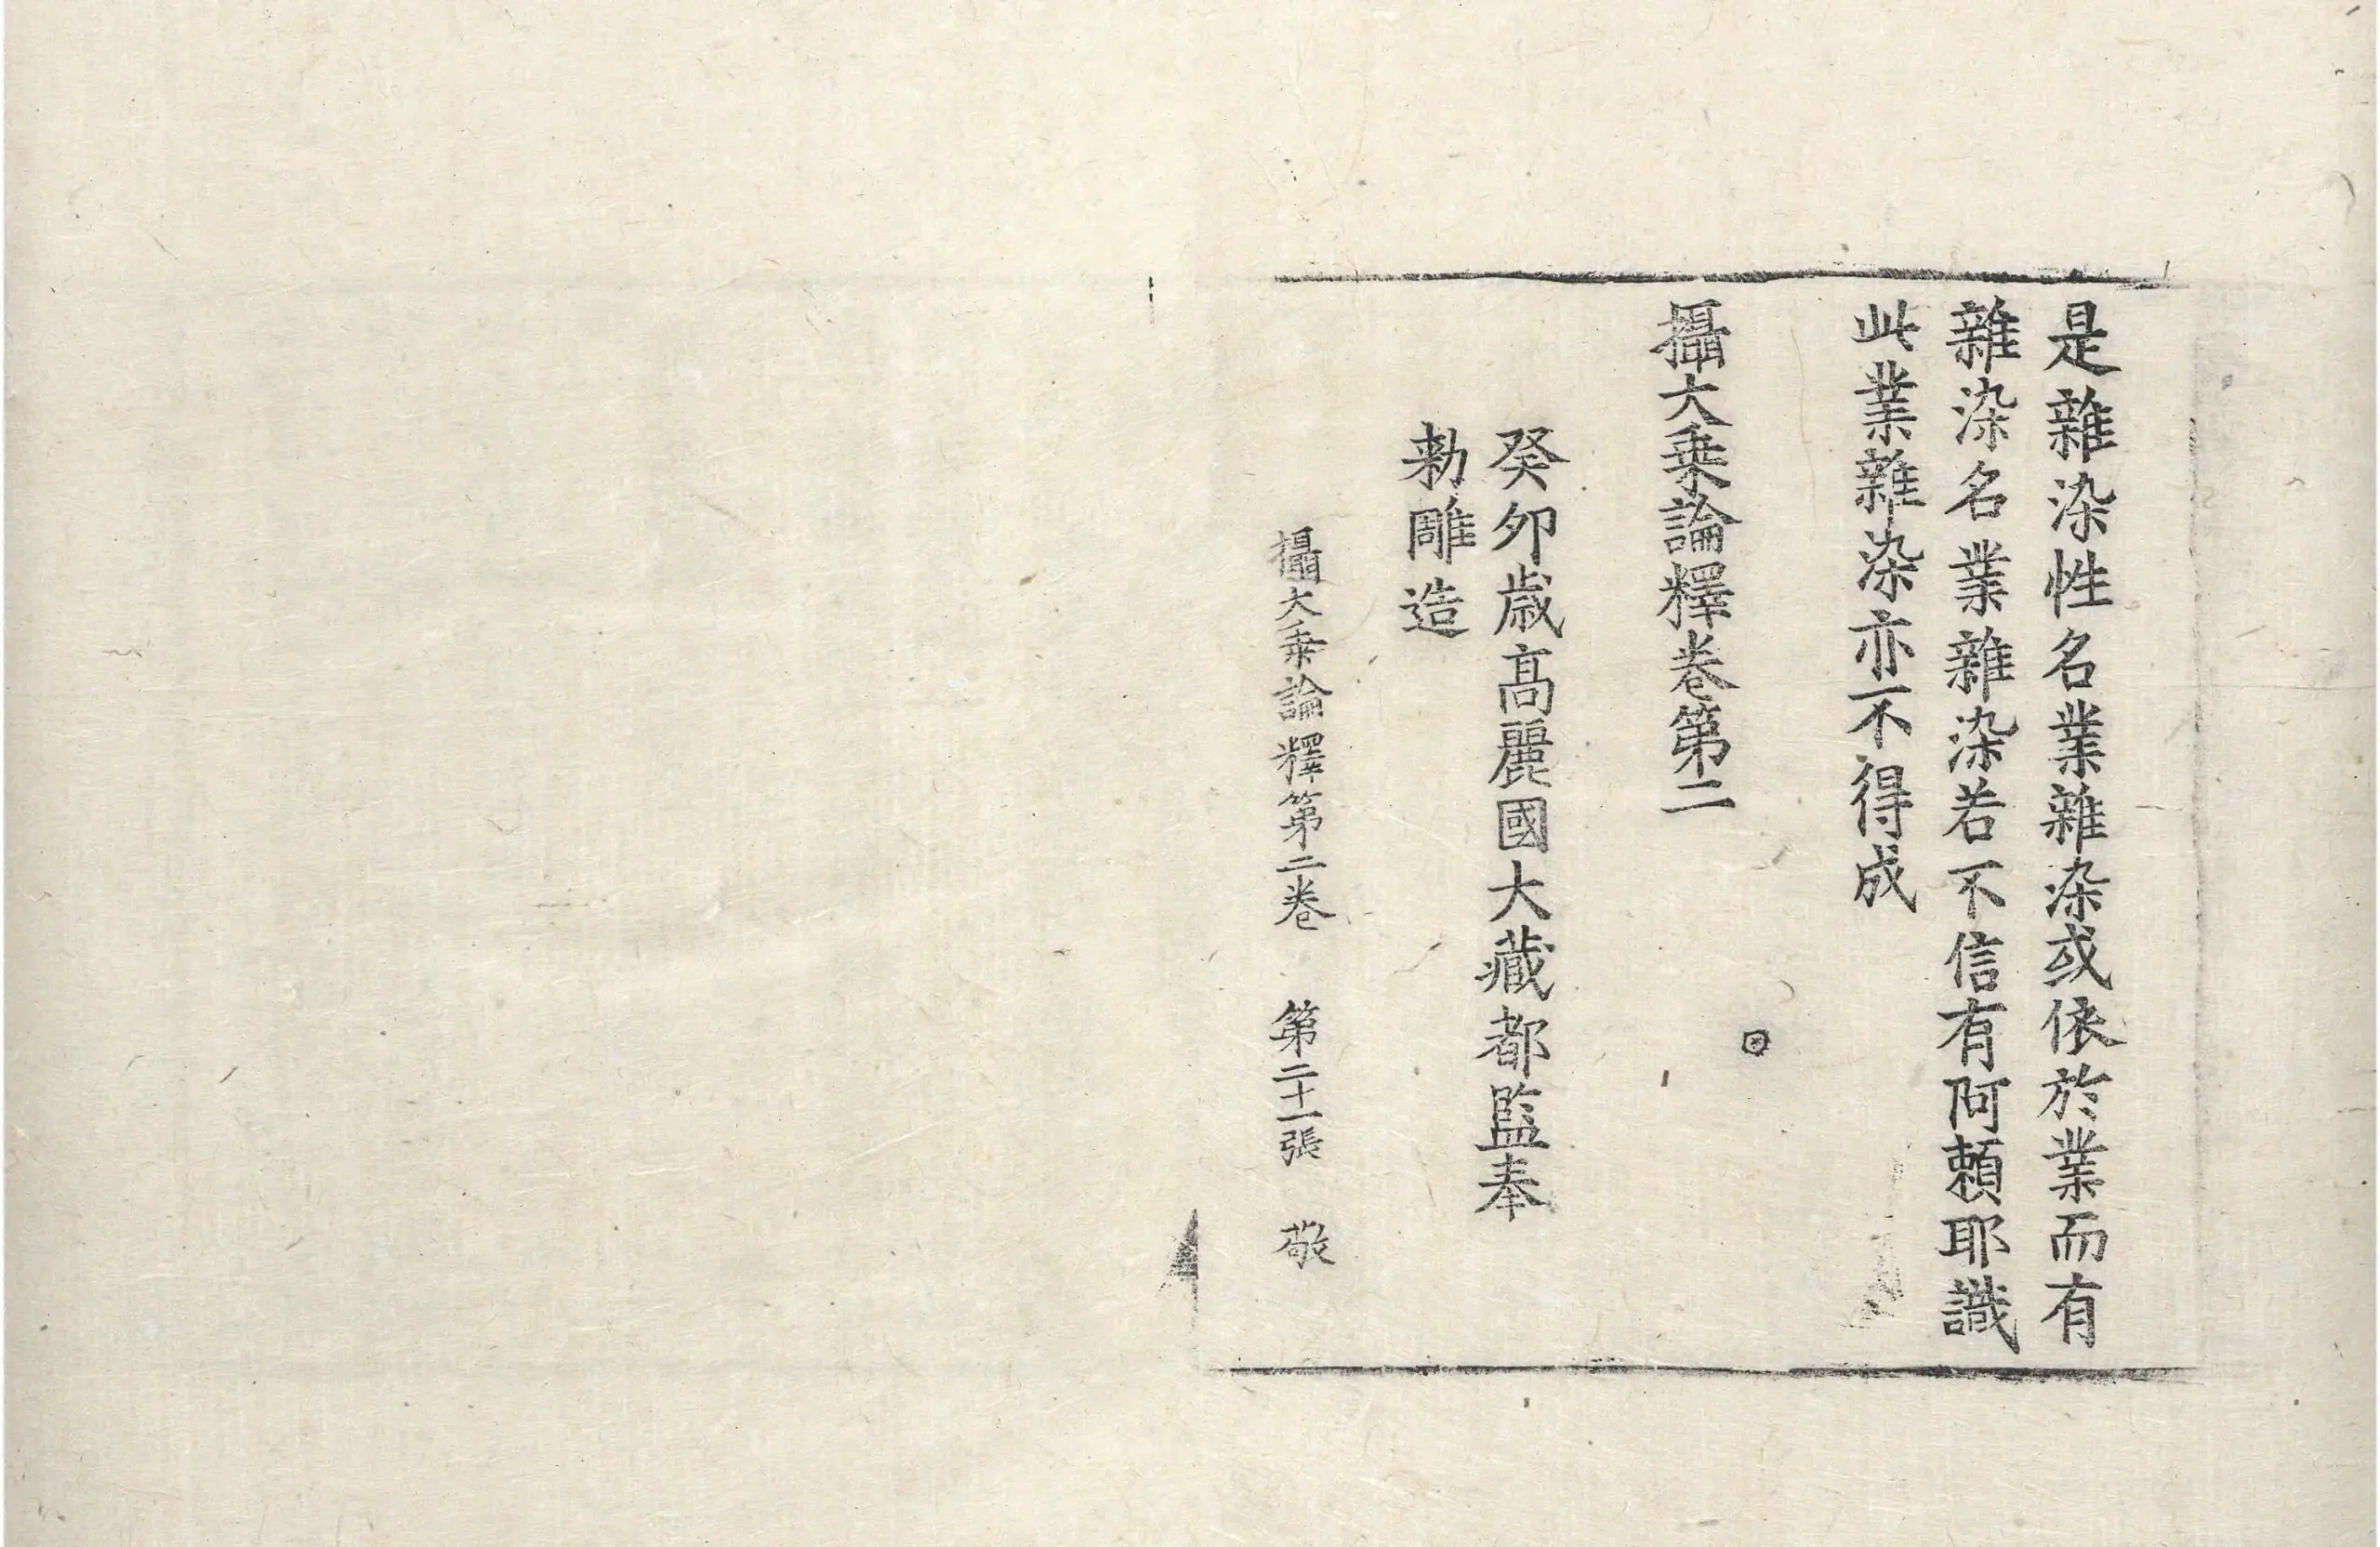 是雜染性名業雜染或依於業而有
雜染名業雜染若不信有阿頼耶識
此業雜染亦不得成
攝大乗論釋卷第二
癸卯歳髙麗國大藏都監奉
勑雕造
攝大乗論釋第二卷 第二十一張 敬